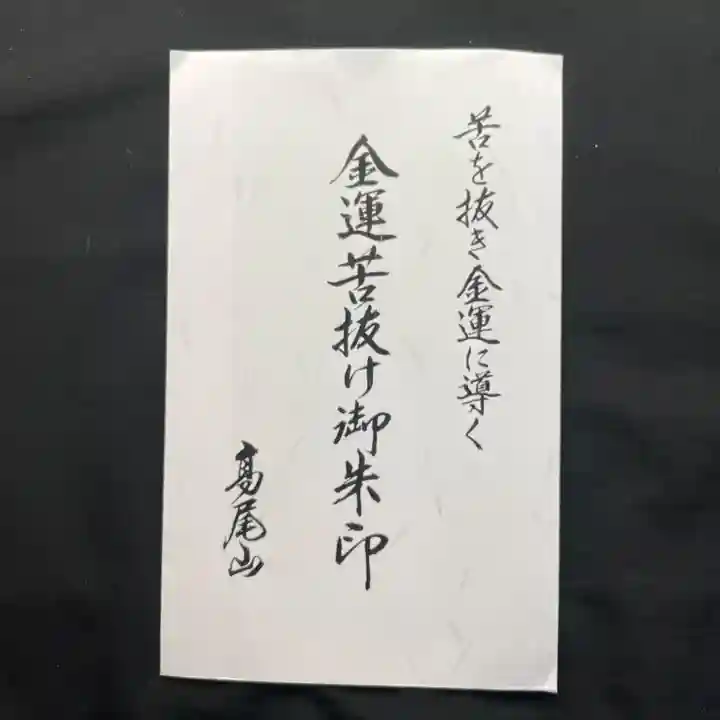 苦を抜き金運に導く
金運苦抜け御朱印
髙尾山